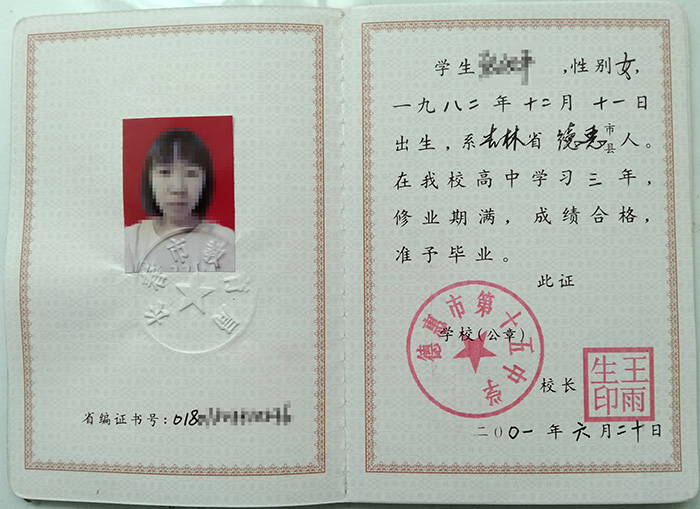 省编证书号:018
学生 ,性别女,
一九八二年十二月十一日
出生,系吉林省德惠市县人。
在我校高中学习三年,
修业期满,成绩合格,
准予毕业。
此证
德惠市第十五中学
学校(公章)
校长
王雨生印
二00一年六月二十日